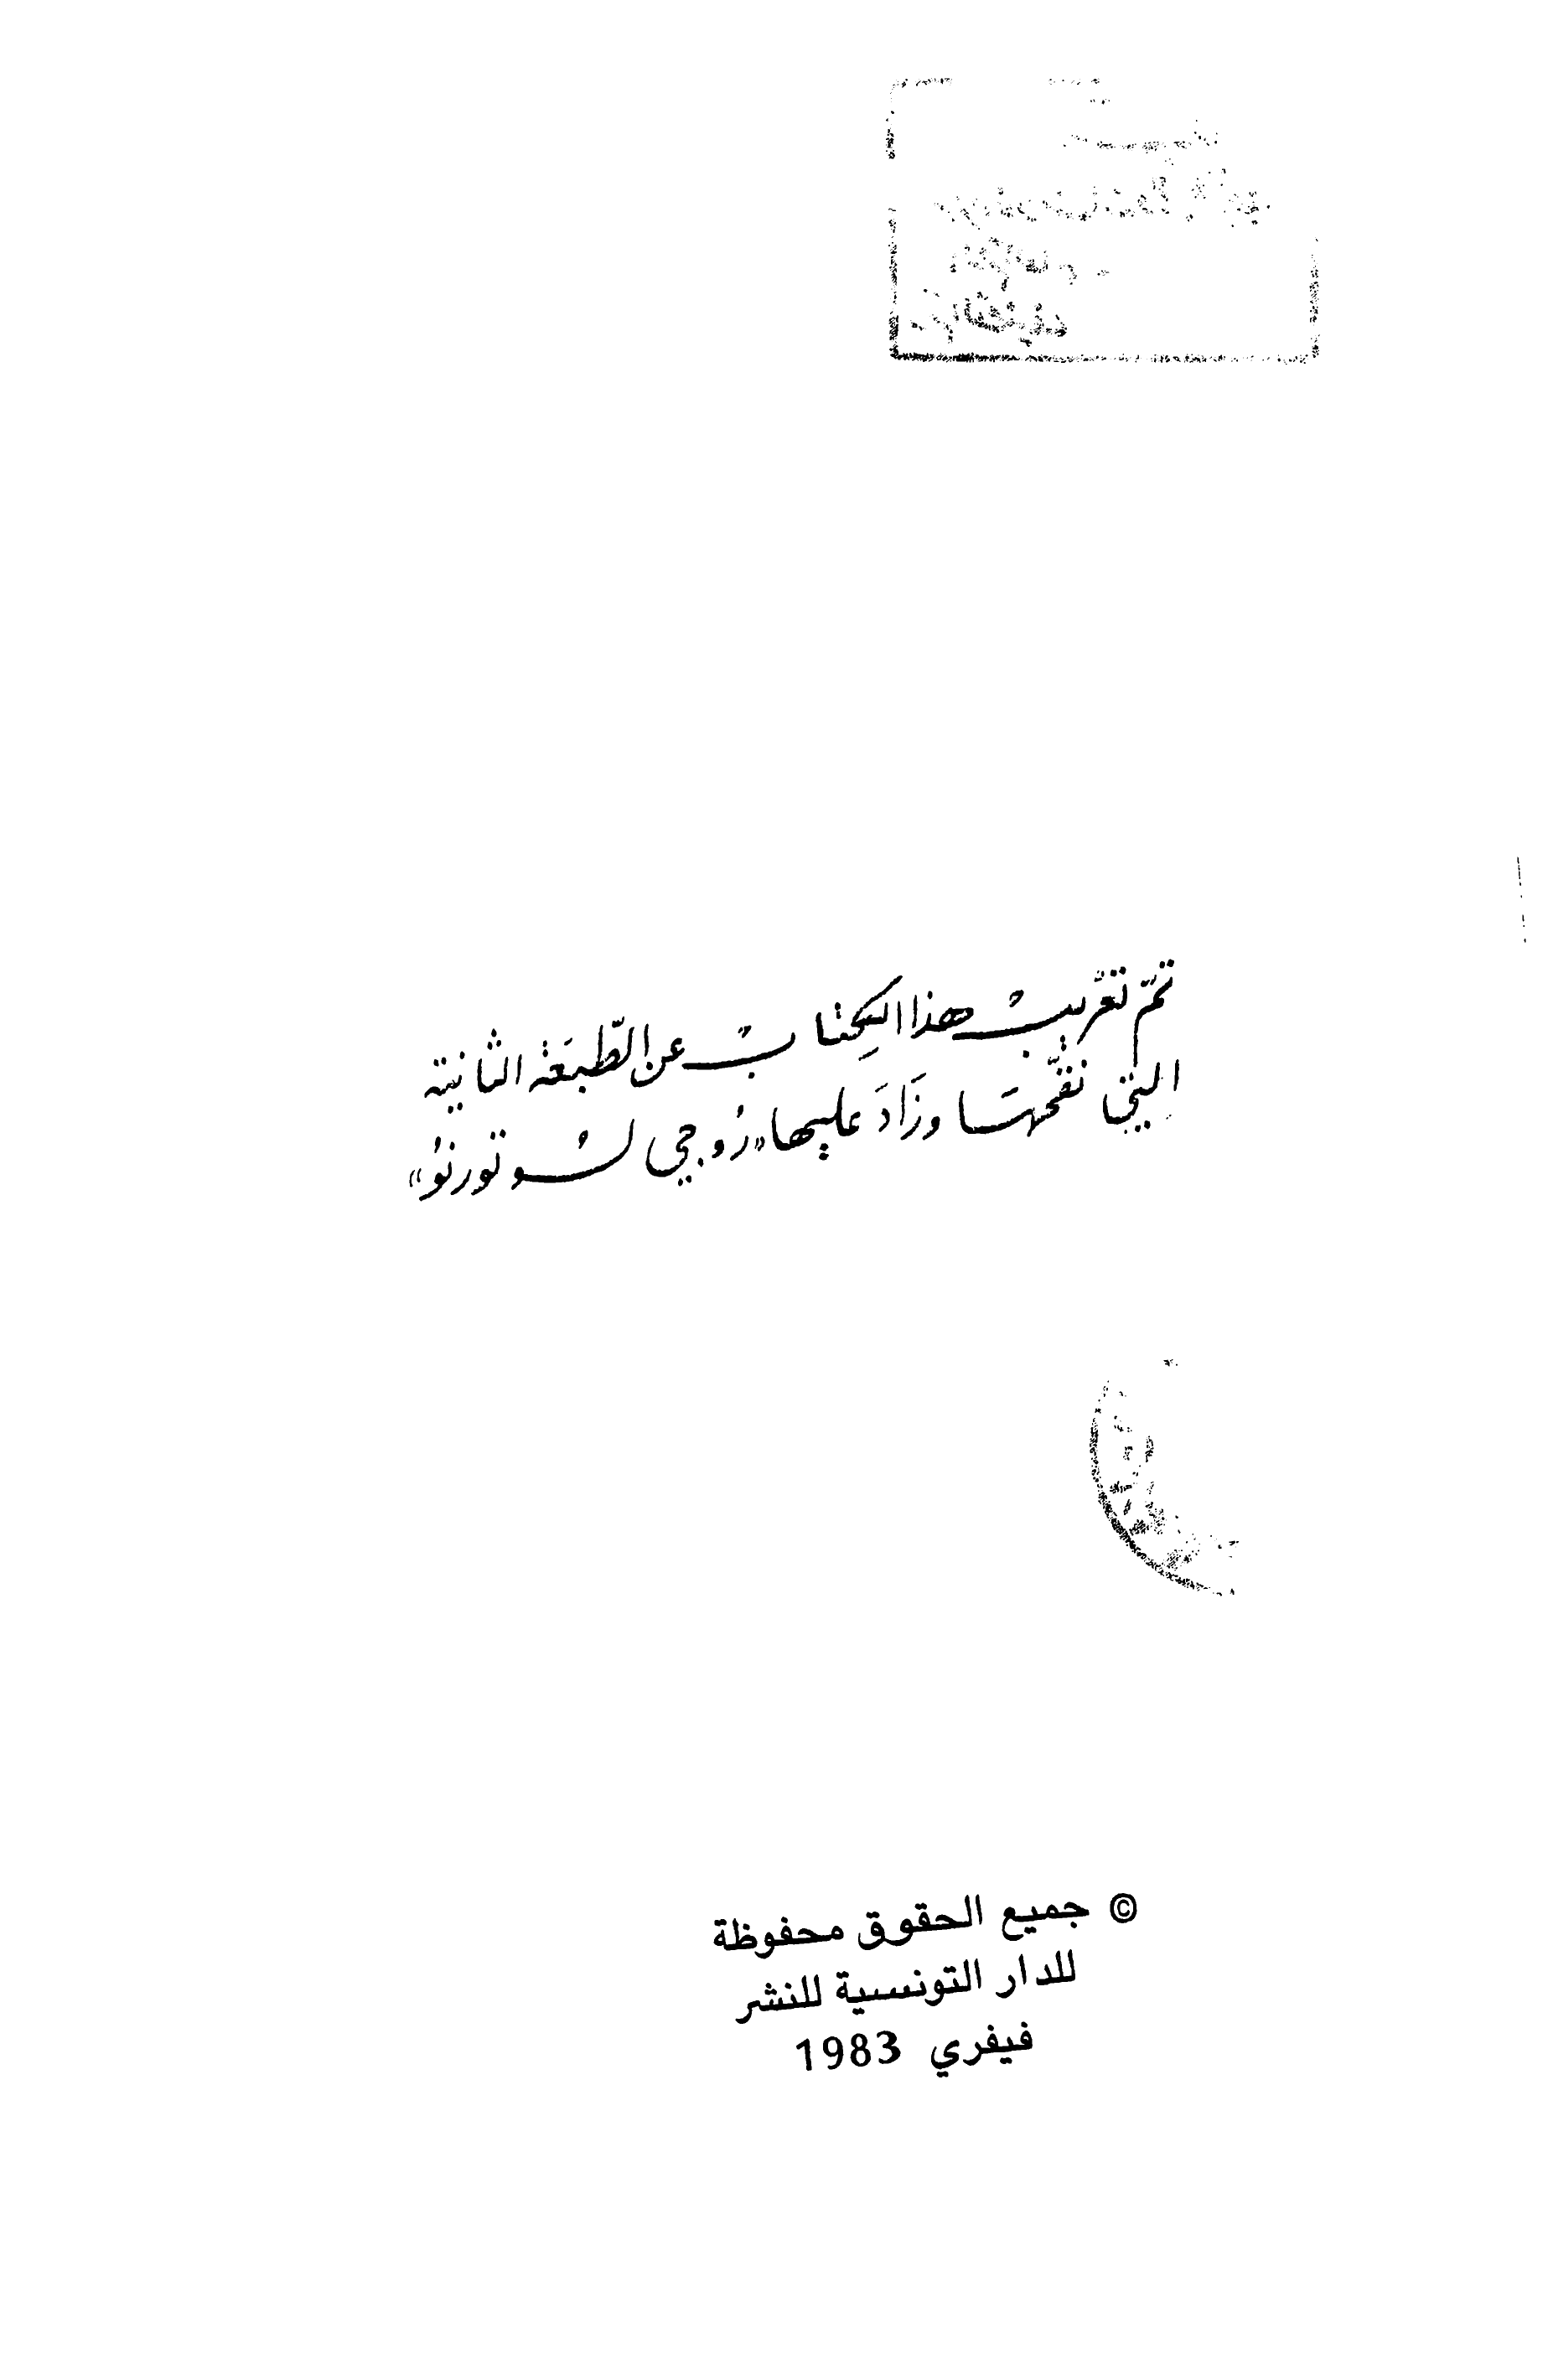 تمّ تعريب هذا الكتاب عن الطّبعة الثانية
التي نقّحها وزَادَ عليها «رُوجي لسوتورنو»
© جميع الحقوق محفوظة
للدار التونسية للنشر
فيفري 1983